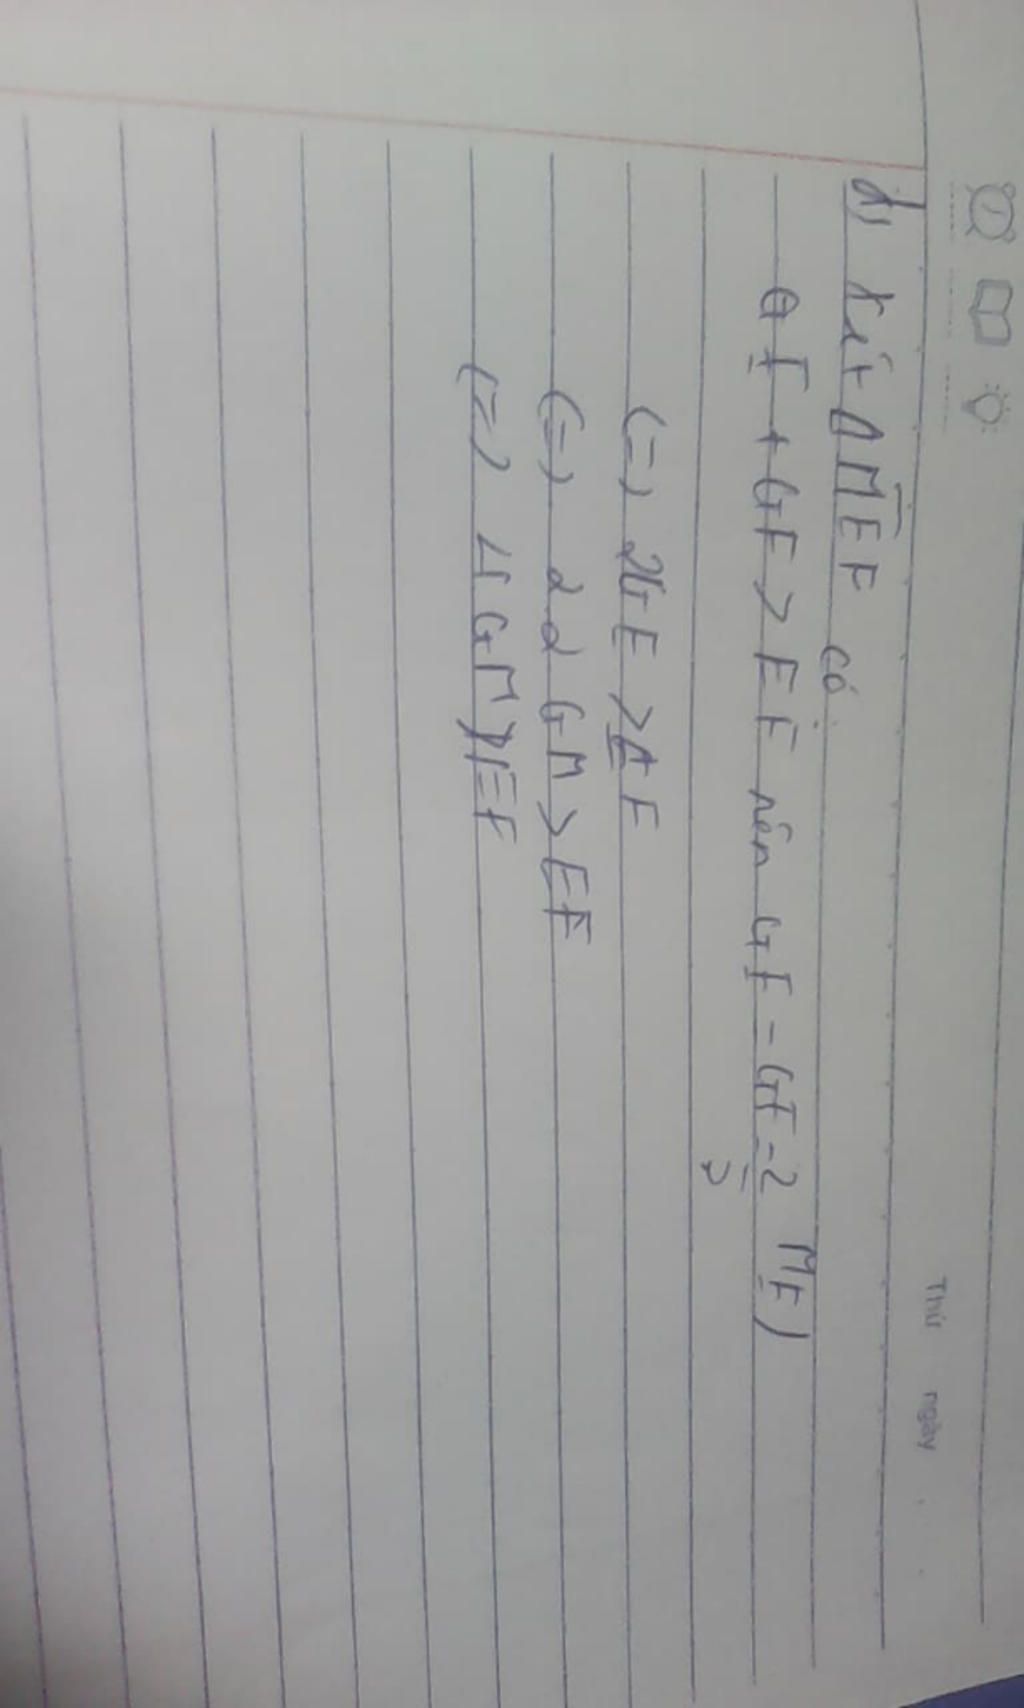 Thứ ngày
d) Xét Δ MEF có
GE + GF > EF nên GF = GE = 2 ME)
3
(=) 2GE > EF
(=) 2 2 GM > EF
(=) 4 GM > EF